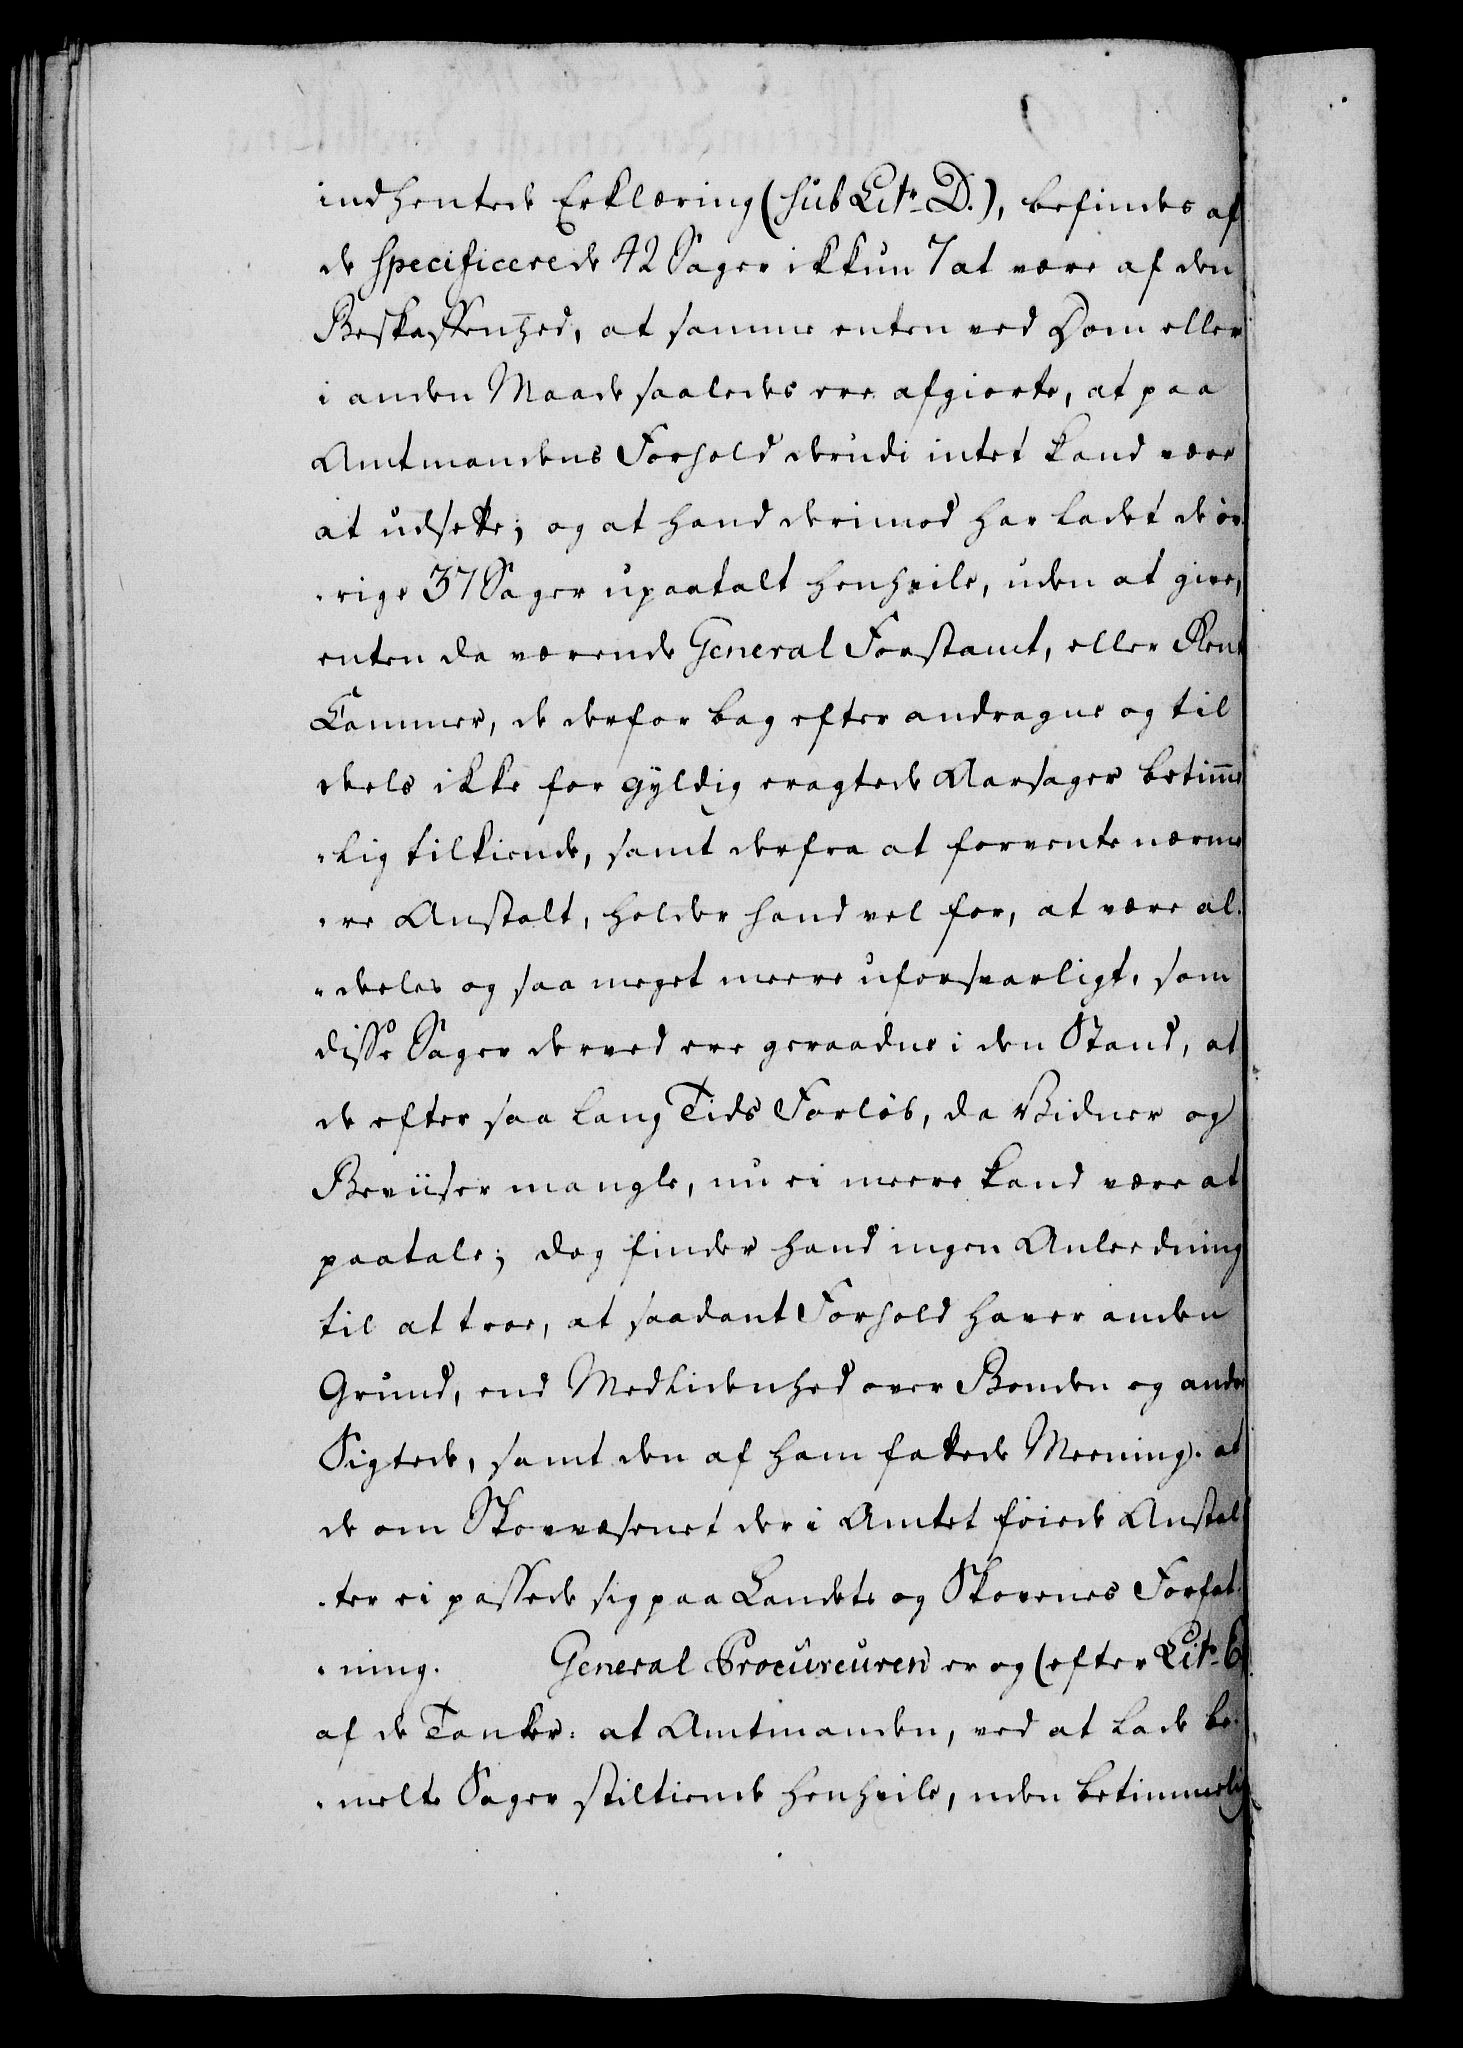 indhentede Erklæring (sub Litr. D.), befindes af
de specificerede 42 Sager ikkun 7 at være af den
Beskaffenhed, at samme enten ved Dom eller
i anden Maade saaledes ere afgiorte, at paa
Amtmandens Forhold derudi intet kand være
at udsette; og at hand derimod har ladet de øv
-rige 37 Sager upaatalt henhvile, uden at give,
enten da værende General Forstamt, eller Rent
Cammer, de derfor bag efter andragne og til
deels ikke for gyldig eragtede Aarsager betimme
-lig tilkiende, samt derfra at forvente nærme
-re Anstalt, holder hand vel for, at være al-
-deeles og saa meget meere uforsvarligt, som
disse Sager derved ere geraadne i den Stand, at
de efter saa lang Tids Forløb, da Vidner og
Beviiser mangle, nu ei meere kand være at
paatale; dog finder hand ingen Anleedning
til at troe, at saadant Forhold haver anden
Grund, end Medlidenhed over Bonden og andre
Sigtede, samt den af ham fattede Meening. at
de om Skovvæsenet der i Amtet føiede Anstal
-ter ei passede sig paa Landets og Skovenes Forfat-
-ning. General Procureuren er og (efter Litr.
af de Tanker: at Amtmanden, ved at lade be-
-melte Sager stiltiende henhvile, uden betimmelig